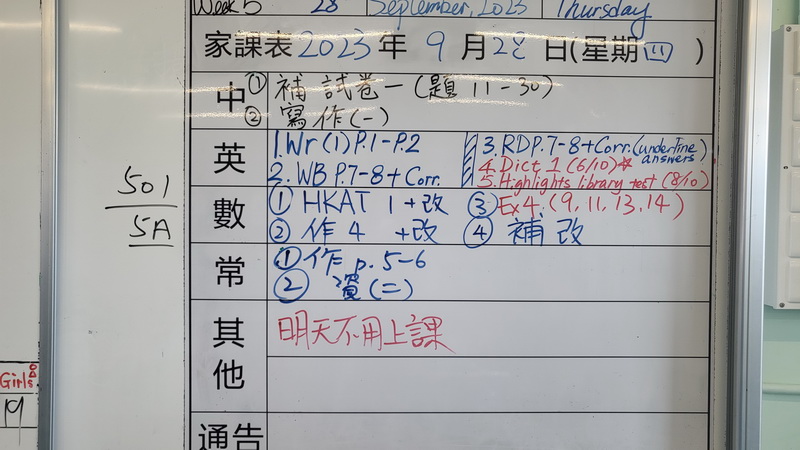 Week 5 28 September, 2023 Thursday
家課表 2023 年 9 月 28 日(星期 四 )
中 ① 補 試卷一 (題 11-30)
② 寫作(一)
英 1. Wr (1) P.1-P.2
2. WB P.7-8 + Corr.
3. RD P.7-8 + Corr. (underline answers)
4. Dict 1 (6/10) ☆
5. Highlights library test (8/10)
數 ① HKAT 1 + 改
② 作 4 + 改
③ Ex 4. (9, 11, 13, 14)
④ 補 改
常 ① 作 p. 5-6
② 資 (二)
其他 明天不用上課
通告
501
5A
Girls
19